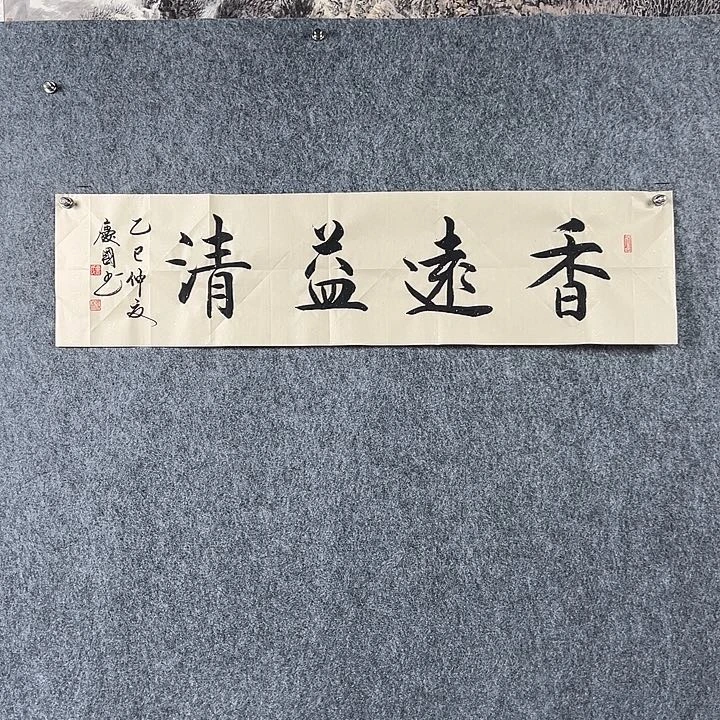 香遠益清
乙巳仲夏
慶國书